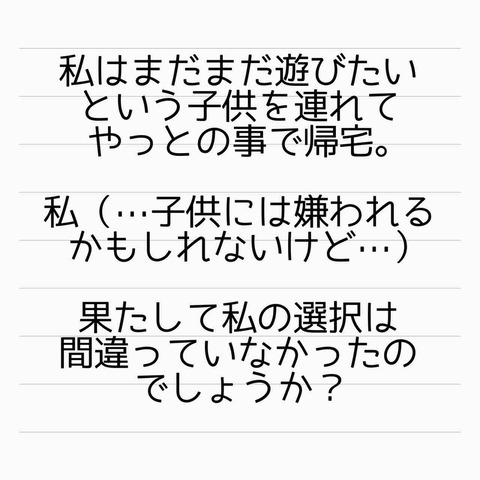 私はまだまだ遊びたい
という子供を連れて
やっとの事で帰宅。
私（…子供には嫌われる
かもしれないけど…）
果たして私の選択は
間違っていなかったの
でしょうか？